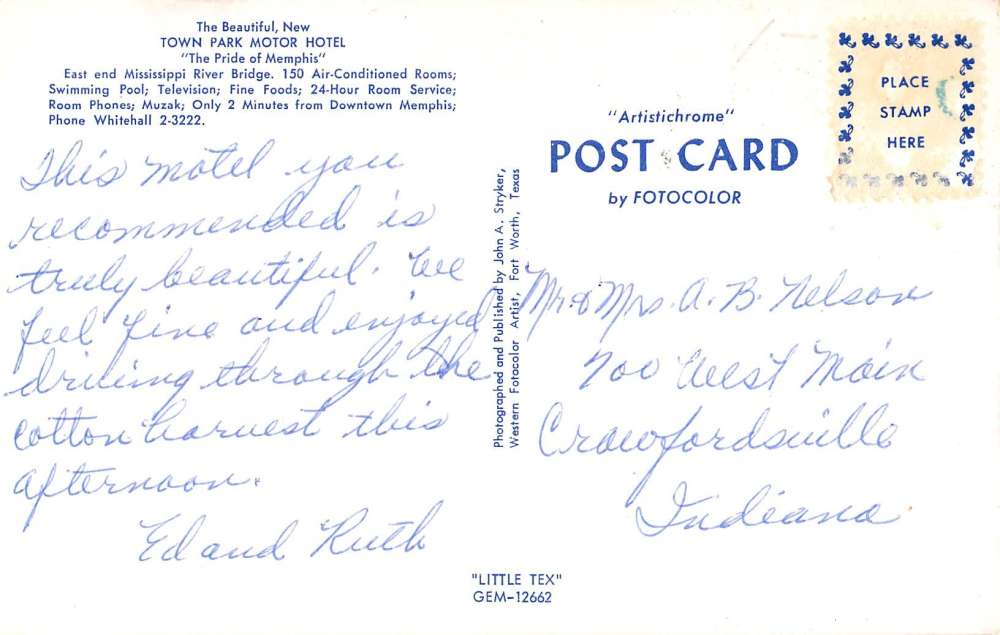 The Beautiful, New
TOWN PARK MOTOR HOTEL
"The Pride of Memphis"
East end Mississippi River Bridge. 150 Air-Conditioned Rooms;
Swimming Pool; Television; Fine Foods; 24-Hour Room Service;
Room Phones; Muzak; Only 2 Minutes from Downtown Memphis;
Phone Whitehall 2-3222.
This motel you
recommended is
truly beautiful. We
feel fine and enjoyed
driving through the
cotton harvest this
afternoon.
Ed and Ruth
Photographed and Published by John A. Stryker,
Western Fotocolor Artist, Fort Worth, Texas
"Artistichrome"
POST CARD
by FOTOCOLOR
PLACE
STAMP
HERE
Mr. & Mrs. A. B. Nelson
700 West Main
Crawfordsville
Indiana
"LITTLE TEX"
GEM-12662